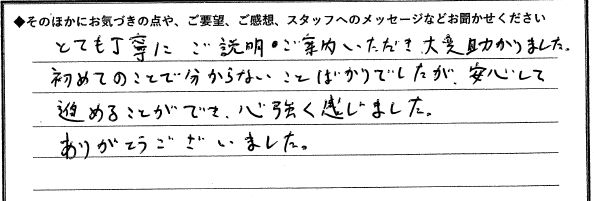 ◆そのほかにお気づきの点や、ご要望、ご感想、スタッフへのメッセージなどお聞かせください
とても丁寧に ご説明・ご案内いただき、大変助かりました。
初めてのことで分からないことばかりでしたが、安心して
進めることができ、心強く感じました。
ありがとうございました。